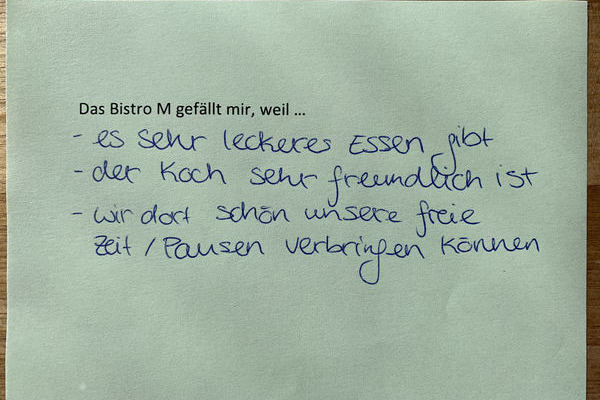 Das Bistro M gefällt mir, weil ...
- es sehr leckeres Essen gibt
- der Koch sehr freundlich ist
- wir dort schön unsere freie
Zeit / Pausen verbringen können